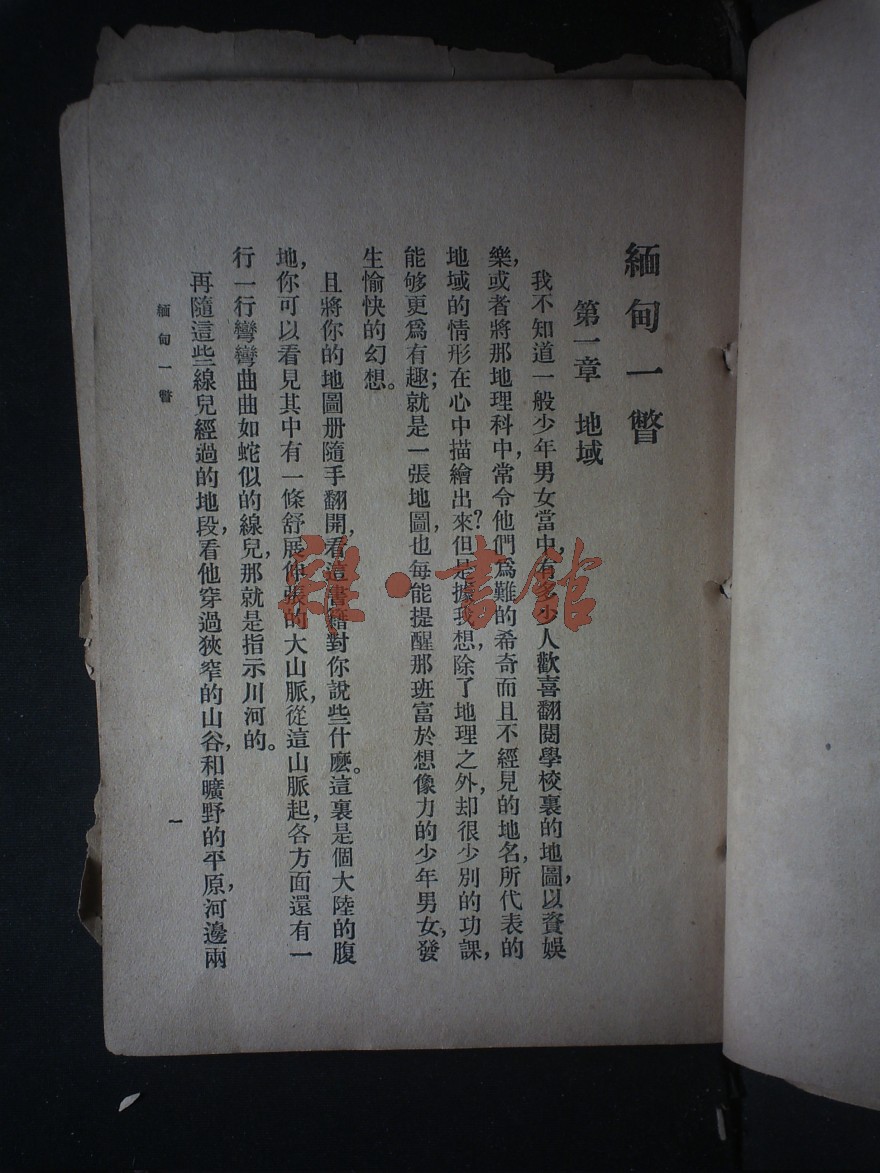 緬甸一瞥
第一章 地域
我不知道一般少年男女當中,有多少人歡喜翻閱學校裏的地圖,以資娛
樂,或者將那地理科中,常令他們爲難的希奇而且不經見的地名,所代表的
地域的情形在心中描繪出來?但是據我想,除了地理之外,却很少別的功課,
能够更爲有趣;就是一張地圖,也每能提醒那班富於想像力的少年男女,發
生愉快的幻想。
且將你的地圖册隨手翻開,看這書籍對你說些什麼。這裏是個大陸的腹
地,你可以看見其中有一條舒展伸張的大山脈,從這山脈起,各方面還有一
行一行彎彎曲曲如蛇似的線兒,那就是指示川河的。
再隨這些線兒經過的地段,看他穿過狹窄的山谷,和曠野的平原,河邊兩
緬甸一瞥
一
雜·書館